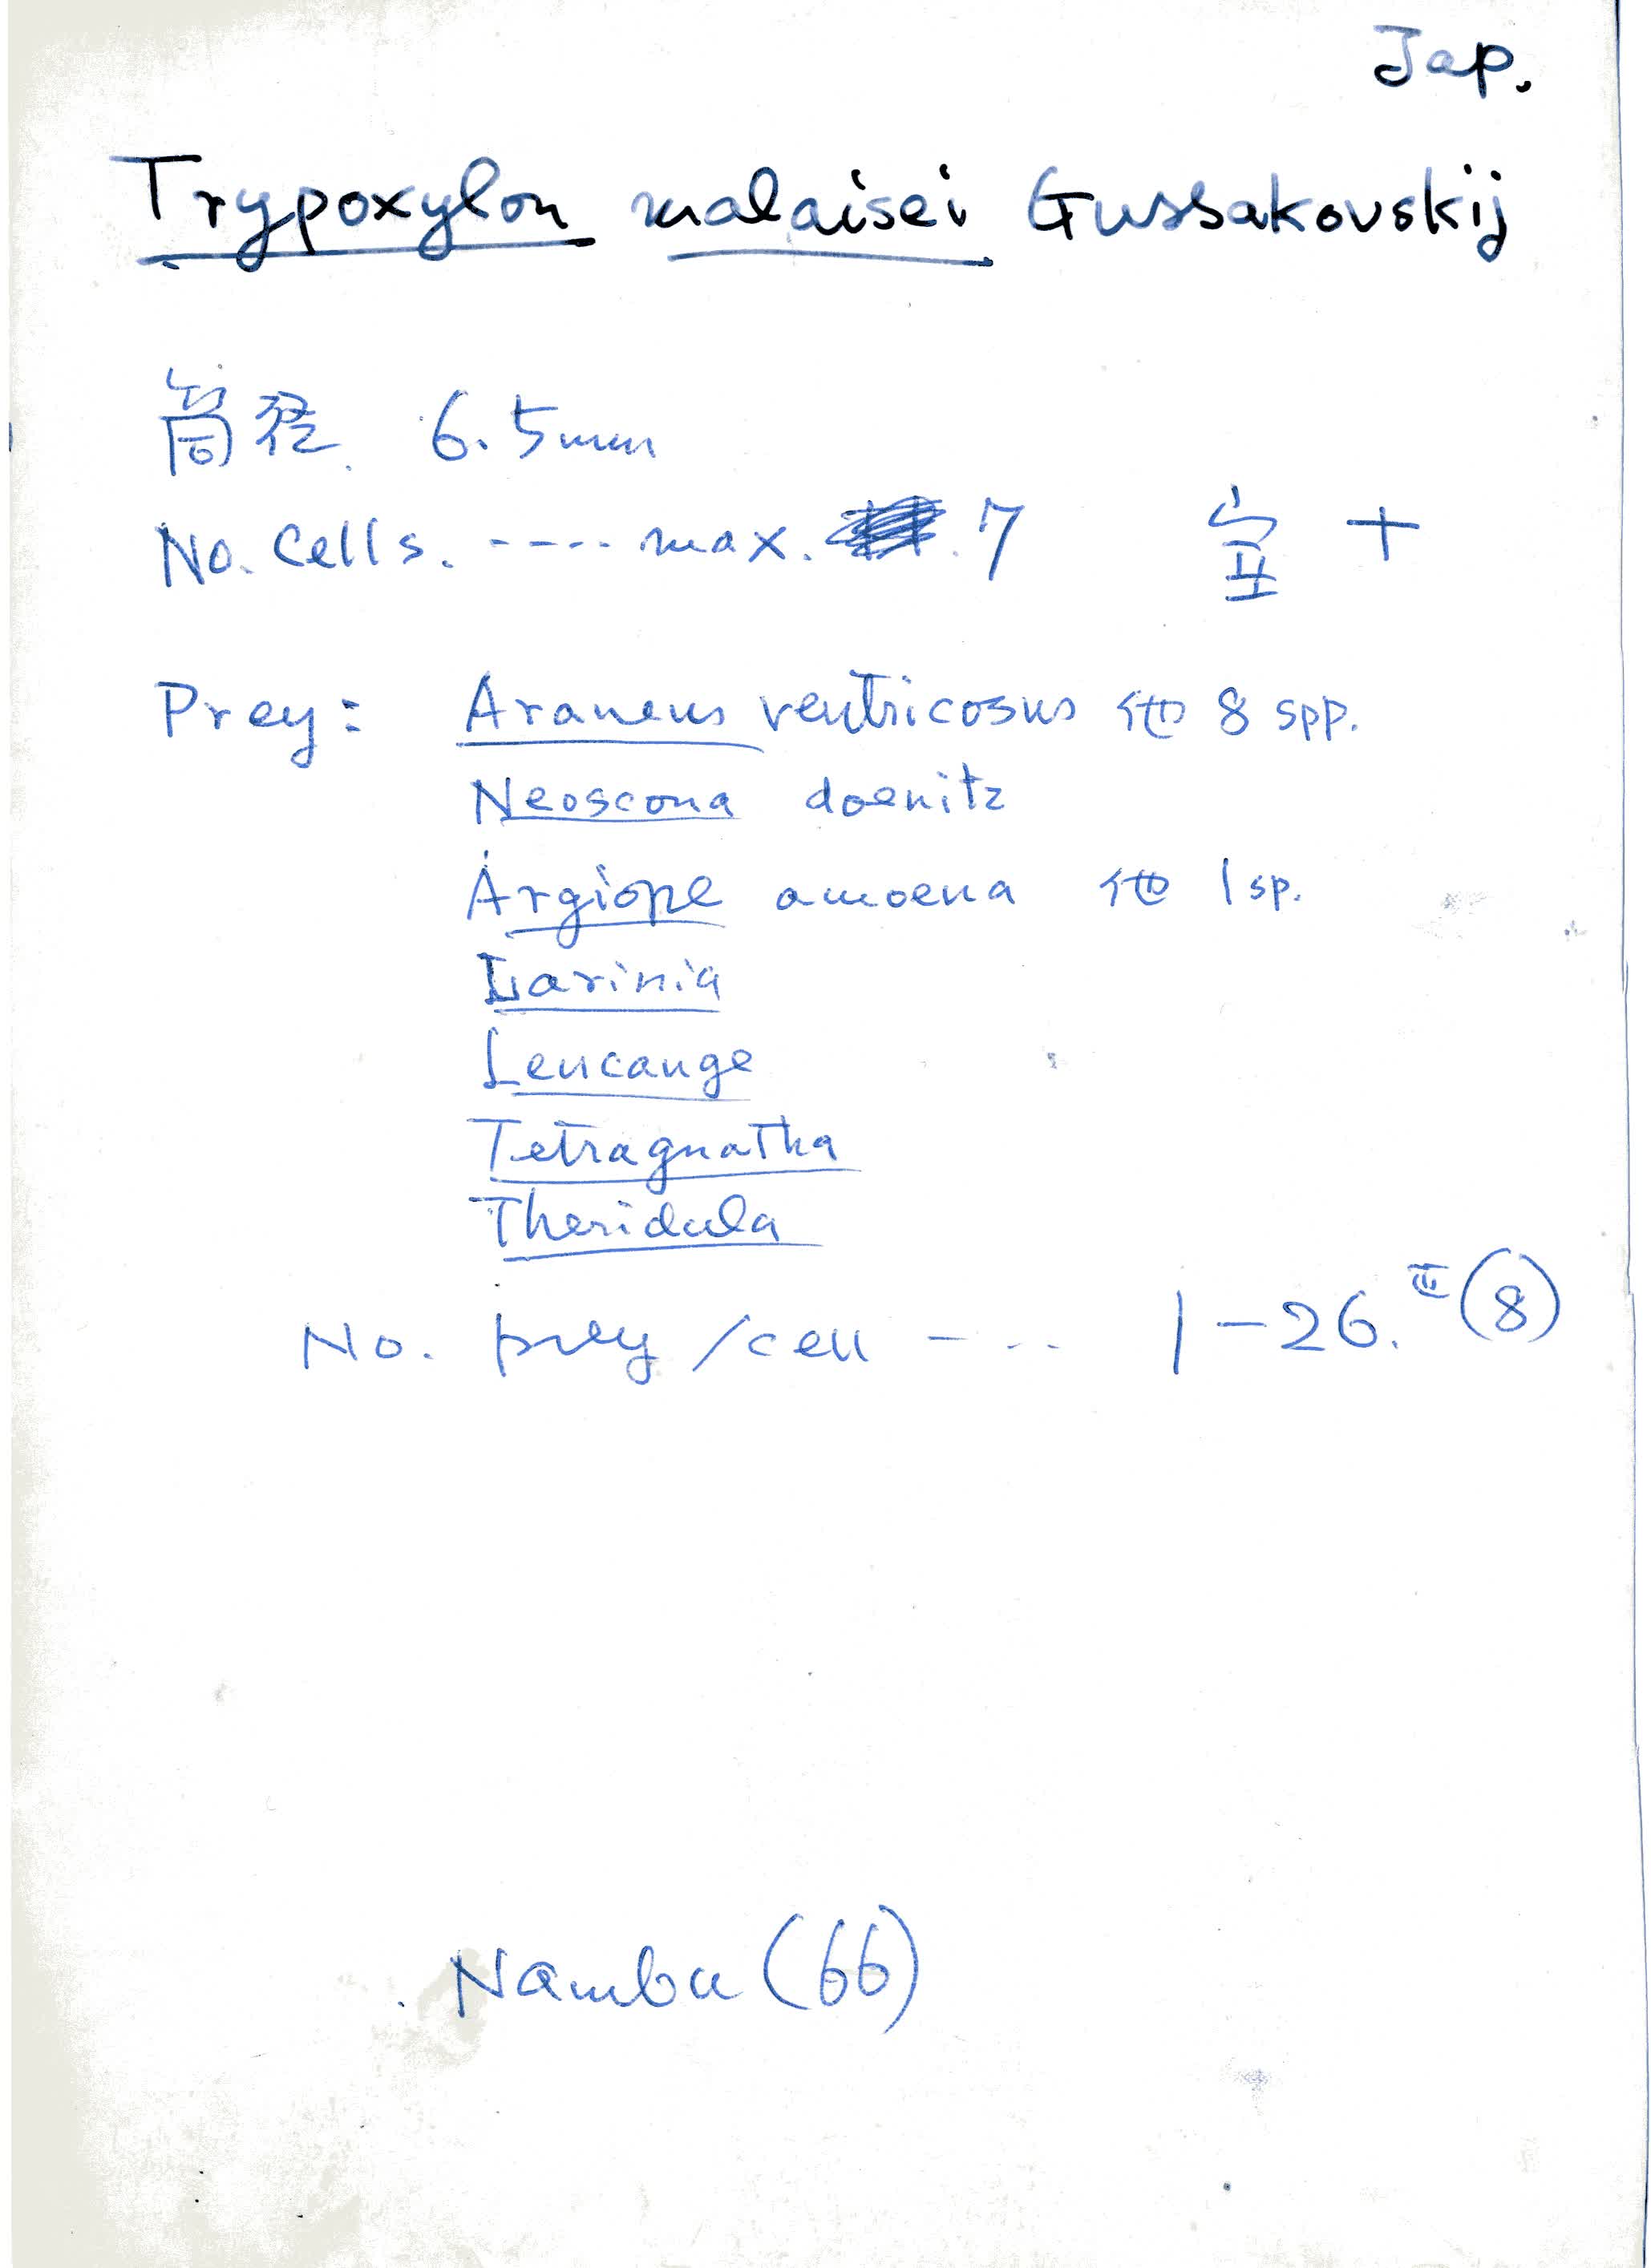 Jap.
Trypoxylon malaisei Gussakovskij
筒径. 6.5mm
No. Cells. ---- max. 7 空 +
Prey: Araneus ventricosus 他 8 spp.
Neoscona doenitz
Argiope amoena 他 1 sp.
Larinia
Leucauge
Tetragnatha
Theridula
No. prey/cell --.. 1-26. (8)
Nambu (66)